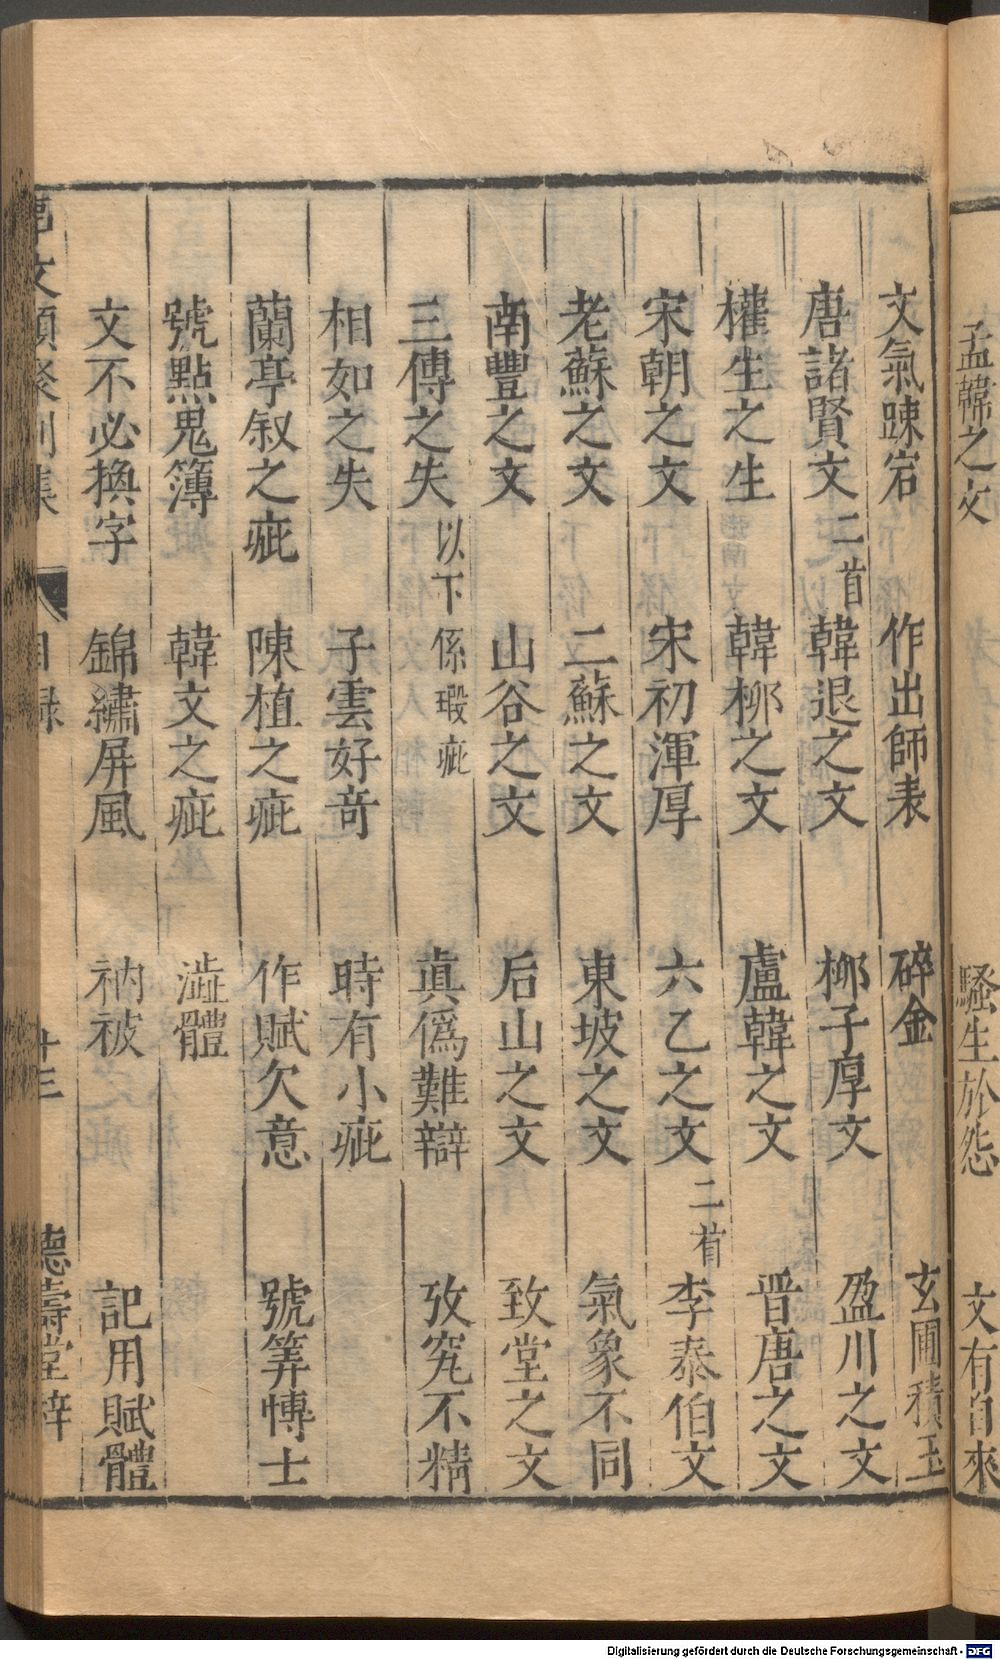 孟韓之文 騷生於怨 文有自來
文氣踈宕 作出師表 碎金 玄圃積玉
唐諸賢文二首 韓退之文 柳子厚文 盈川之文
權生之生 韓柳之文 盧韓之文 晋唐之文
宋朝之文 宋初渾厚 六乙之文二首 李泰伯文
老蘇之文 二蘇之文 東坡之文 氣象不同
南豐之文 山谷之文 后山之文 致堂之文
三傳之失以下係瑕疵 眞僞難辯 攷究不精
相如之失 子雲好奇 時有小疵
蘭亭叙之疵 陳植之疵 作賦欠意 號筭愽士
號點鬼簿 韓文之疵 澁體
文不必換字 錦繡屏風 衲被 記用賦體
事文類聚別集 八 目録 十三 德壽堂梓
Digitalisierung gefördert durch die Deutsche Forschungsgemeinschaft - DFG